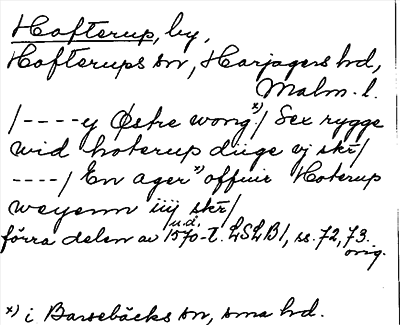 Hofterup, by,
Hofterups sn, Harjagers hd,
Malm. l.
/----y Østre wong x)/ Sex rygge
wid hoterup diige vj skr/
----/ En ager x) offuir Hoterup
weyenn iiij skr/
förra delen av 1570-t. u.d. LSLB1, ss. 72, 73.
orig.
x) i Barsebäcks sn, sma hd.